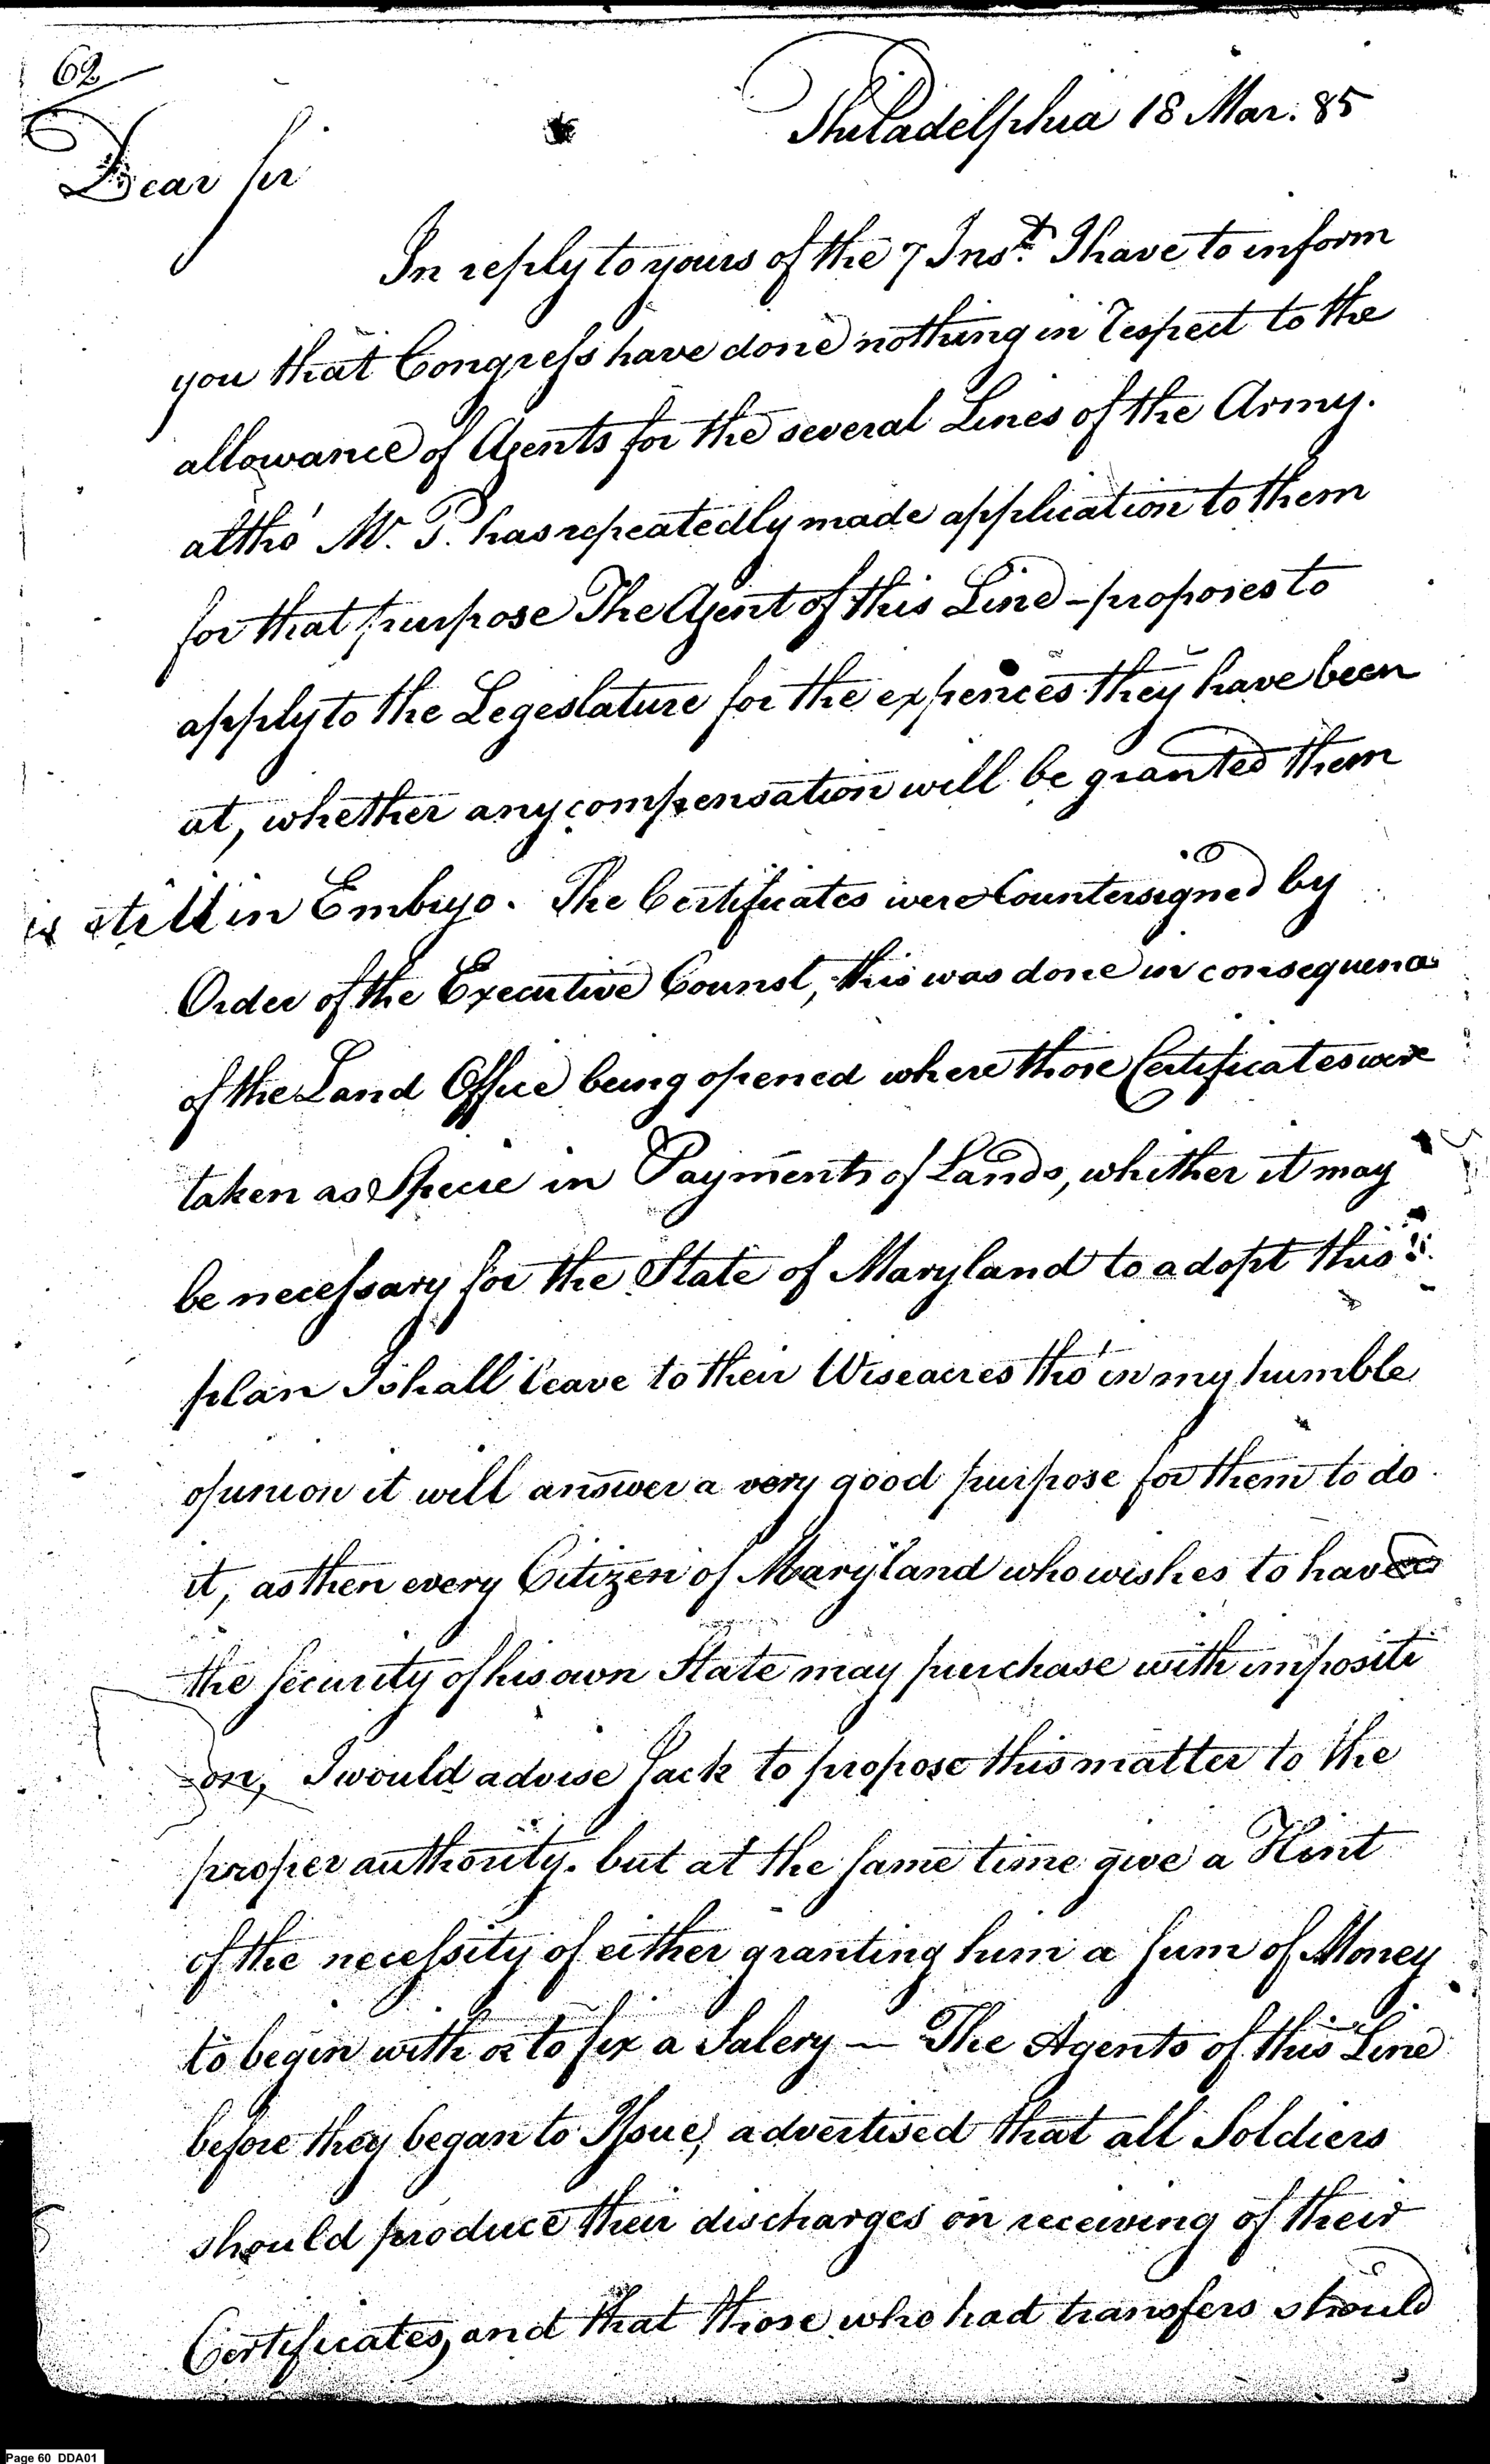 62
Philadelphia 18 Mar. 85
Dear Sir
In reply to yours of the 7 Inst. I have to inform
you that Congress have done nothing in respect to the
allowance of Agents for the several Lines of the Army.
altho' Mr. P. has repeatedly made application to them
for that purpose The Agent of this Line - proposes to
apply to the Legeslature for the expences they have been
at, whether any compensation will be granted them
is still in Embryo. The Certificates were Countersigned by
Order of the Executive Counsl, this was done in consequence
of the Land Office being opened where those Certificates were
taken as Specie in Payments of Lands, whither it may
be necessary for the State of Maryland to adopt this
plan I shall leave to their Wiseacres tho' in my humble
opinion it will answer a very good purpose for them to do
it, as then every Citizen of Maryland who wishes to have
the security of his own State may purchase with impositi
-on, I would advise Jack to propose this matter to the
proper authority. but at the same time give a Hint
of the necessity of either granting him a sum of Money
to begin with or to fix a Salery — The Agents of this Line
before they began to Issue, advertised that all Soldiers
should produce their discharges on receiving of their
Certificates, and that those who had transfers should
Page 60 DDA01